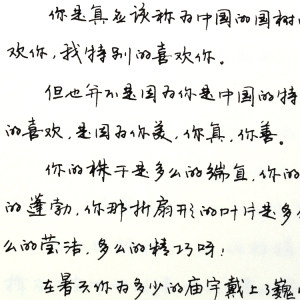 你是真应该称为中国的国树
欢你，我特别的喜欢你。
但也并不是因为你是中国的特
的喜欢，是因为你美，你真，你善。
你的株干是多么的端直，你的
的蓬勃，你那折扇形的叶片是多
么的莹洁，多么的精巧呀！
在暑天你为多少的庙宇戴上了巍